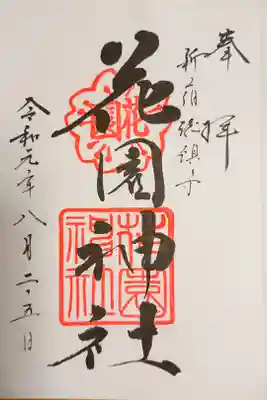 奉拝
新宿総鎮守
花園神社
花園神社
令和元年八月二十五日